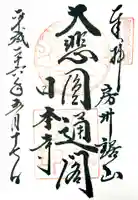 奉拝 房州鋸山
大悲圓通閣
日本寺
平成二十六年五月十七日